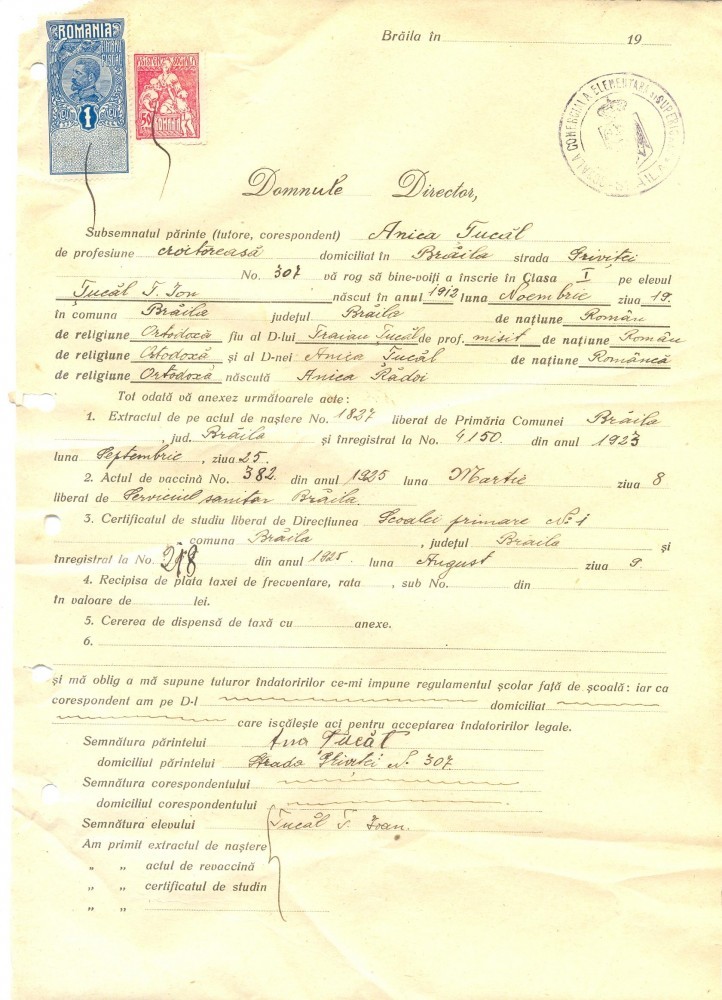 Brăila în 19
ROMANIA
TIMBRU FISCAL
LEU 1 LEU
ASISTENȚA SOCIALA
50
ROMANIA
ȘCOALA COMERCIALĂ ELEMENTARĂ ȘI SUPERIOARĂ BRĂILA
Domnule Director,
Subsemnatul părinte (tutore, corespondent) Anica Țucăl
de profesiune croitoreasă domiciliat în Brăila strada Griviței
No. 307 vă rog să bine-voiți a înscrie în Clasa I pe elevul
Țucăl T. Ion născut în anul 1912 luna Noembrie ziua 19.
în comuna Brăila județul Brăila de națiune Român
de religiune Ortodoxă fiu al D-lui Traian Țucăl de prof. misit de națiune Român
de religiune Ortodoxă și al D-nei Anica Țucăl de națiune Româncă
de religiune Ortodoxă născută Anica Rădoi
Tot odată vă anexez următoarele acte:
1. Extractul de pe actul de naștere No. 1827 liberat de Primăria Comunei Brăila
jud. Brăila și înregistrat la No. 4150. din anul 1923
luna Septembrie, ziua 25.
2. Actul de vaccină No. 382. din anul 1925 luna Martie ziua 8
liberat de Serviciul sanitar Brăila.
3. Certificatul de studiu liberat de Direcțiunea Școalei primare No. 1
comuna Brăila, județul Brăila și
înregistrat la No. 218 din anul 1925. luna August ziua 9.
4. Recipisa de plata taxei de frecventare, rata , sub No. din
în valoare de lei.
5. Cererea de dispensă de taxă cu anexe.
6.
și mă oblig a mă supune tuturor îndatoririlor ce-mi impune regulamentul școlar față de școală: iar ca
corespondent am pe D-l domiciliat
care iscălește aci pentru acceptarea îndatoririlor legale.
Semnătura părintelui Ana Țucăl
domiciliul părintelui Strada Griviței N. 307
Semnătura corespondentului
domiciliul corespondentului
Semnătura elevului Țucăl T. Ioan.
Am primit extractul de naștere
„ „ actul de revaccină
„ „ certificatul de studin
„ „